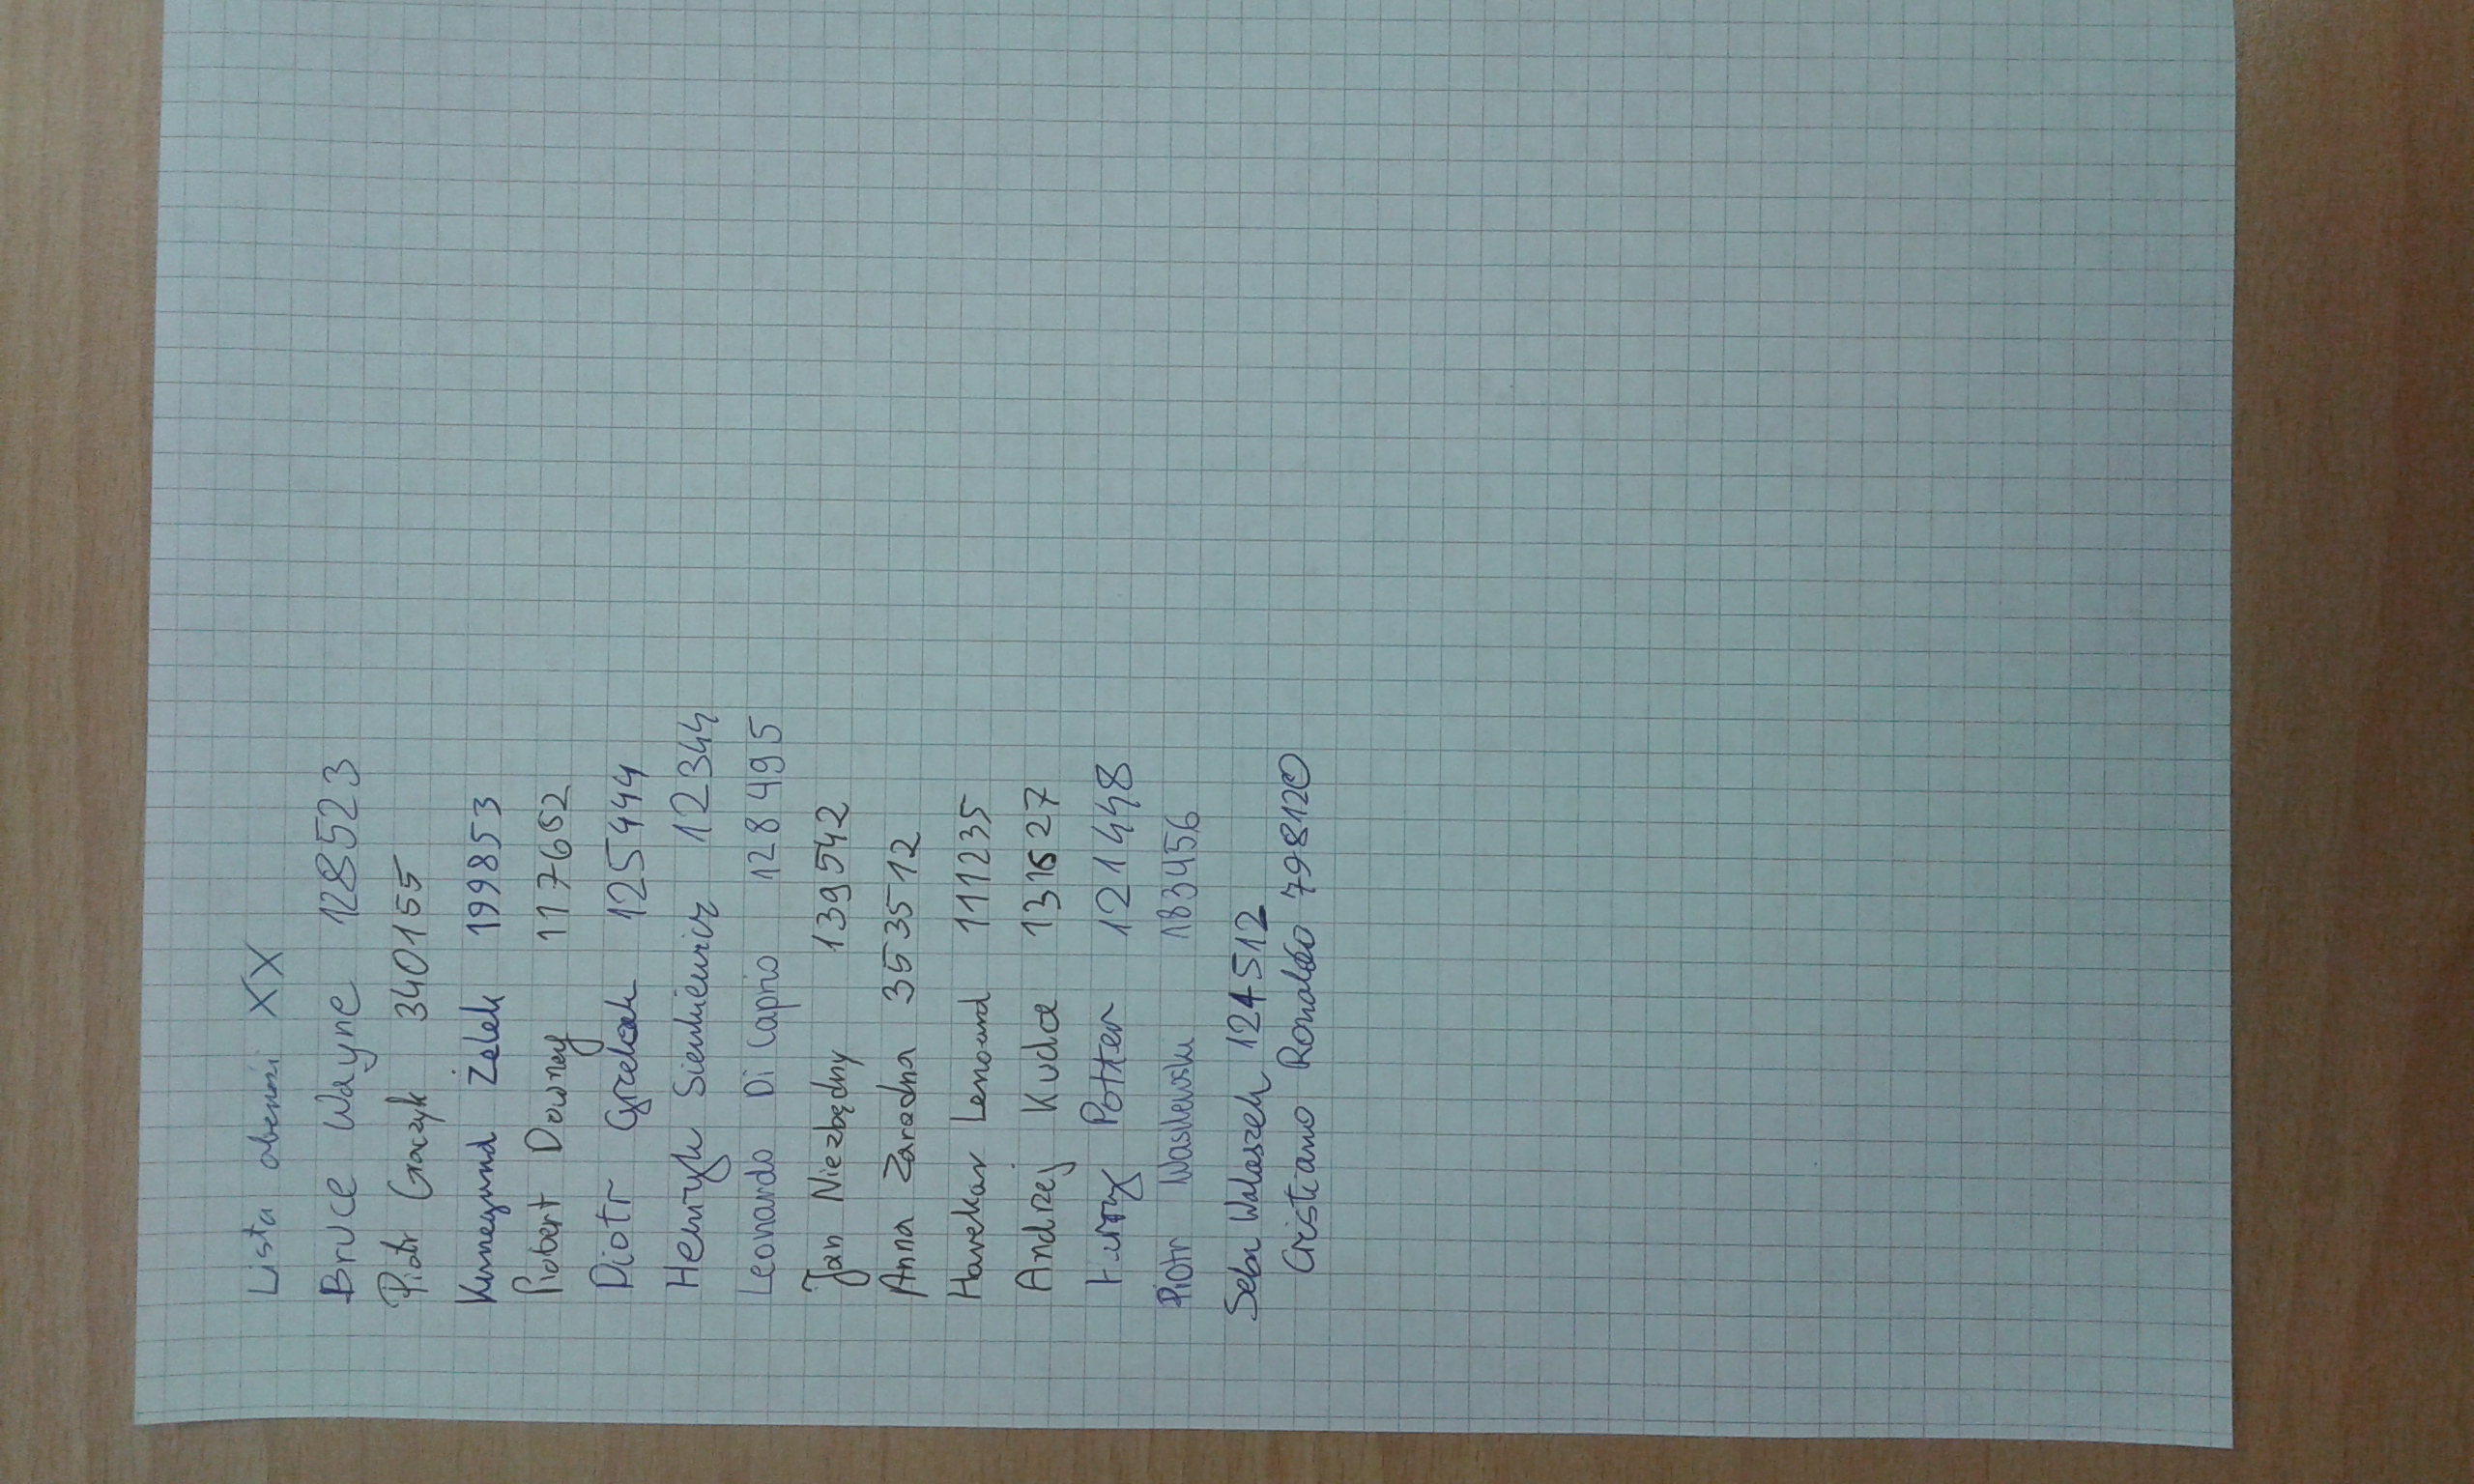 Lista obecności XX
Bruce Wayne 128523
Piotr Graczyk 340155
Kunegund Żelek 199853
Robert Downey 117652
Piotr 125444
Henryk Sienkiewicz 12344
Leonardo Di Caprio 128495
Jan Niezbędny 139542
Anna Zaradna 353512
Harekar Lenoard 111235
Andrzej Kudca 131527
Harry Potter 121448
Piotr Wasilewski 183456
Seba Walaszek 124512
Cristiano Ronaldo 798120